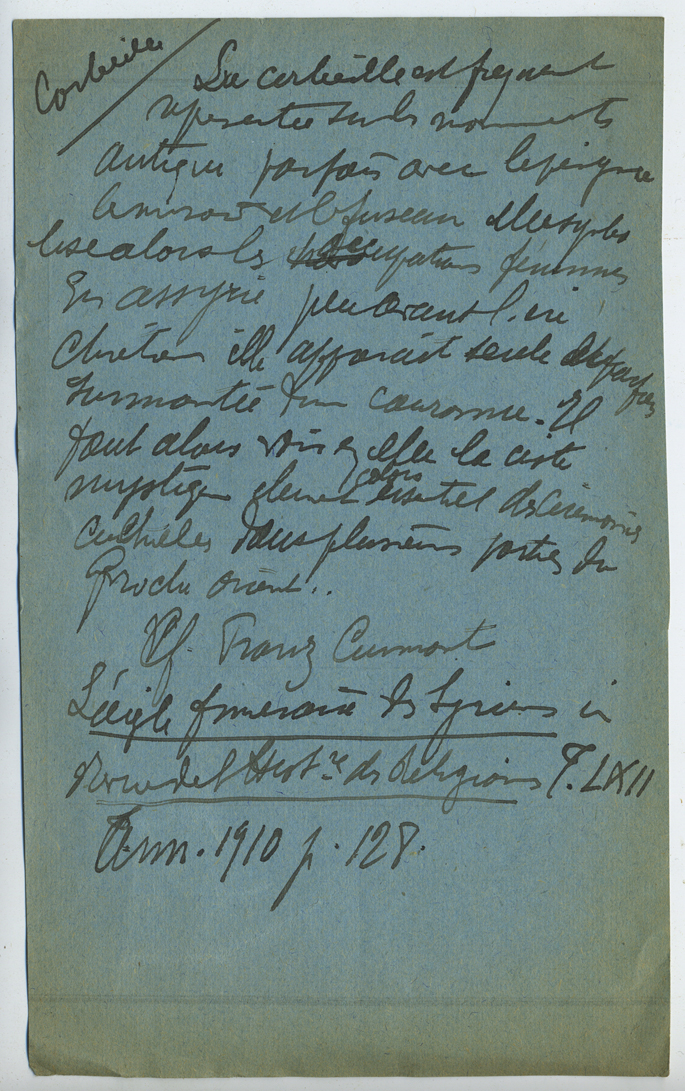 Corbeille
La corbeille est fréquent
représentée sur les monuments
antiques parfois avec le peigne
le miroir et le fuseau elle symbo
lise alors les occupations féminines
En assyrie peu avant l'ère
Chrétienne elle apparait seule et parfois
surmontée d'une couronne. Il
faut alors voir en elle la ciste
mystique element alors essentiel des cérémonies
cultuelles dans plusieurs parties du
Proche orient..
Cf. Franz Cumont
L'aigle funéraire des Syriens in
Revue de l'Histre des Religions T. LXII
Ann. 1910 p. 128.